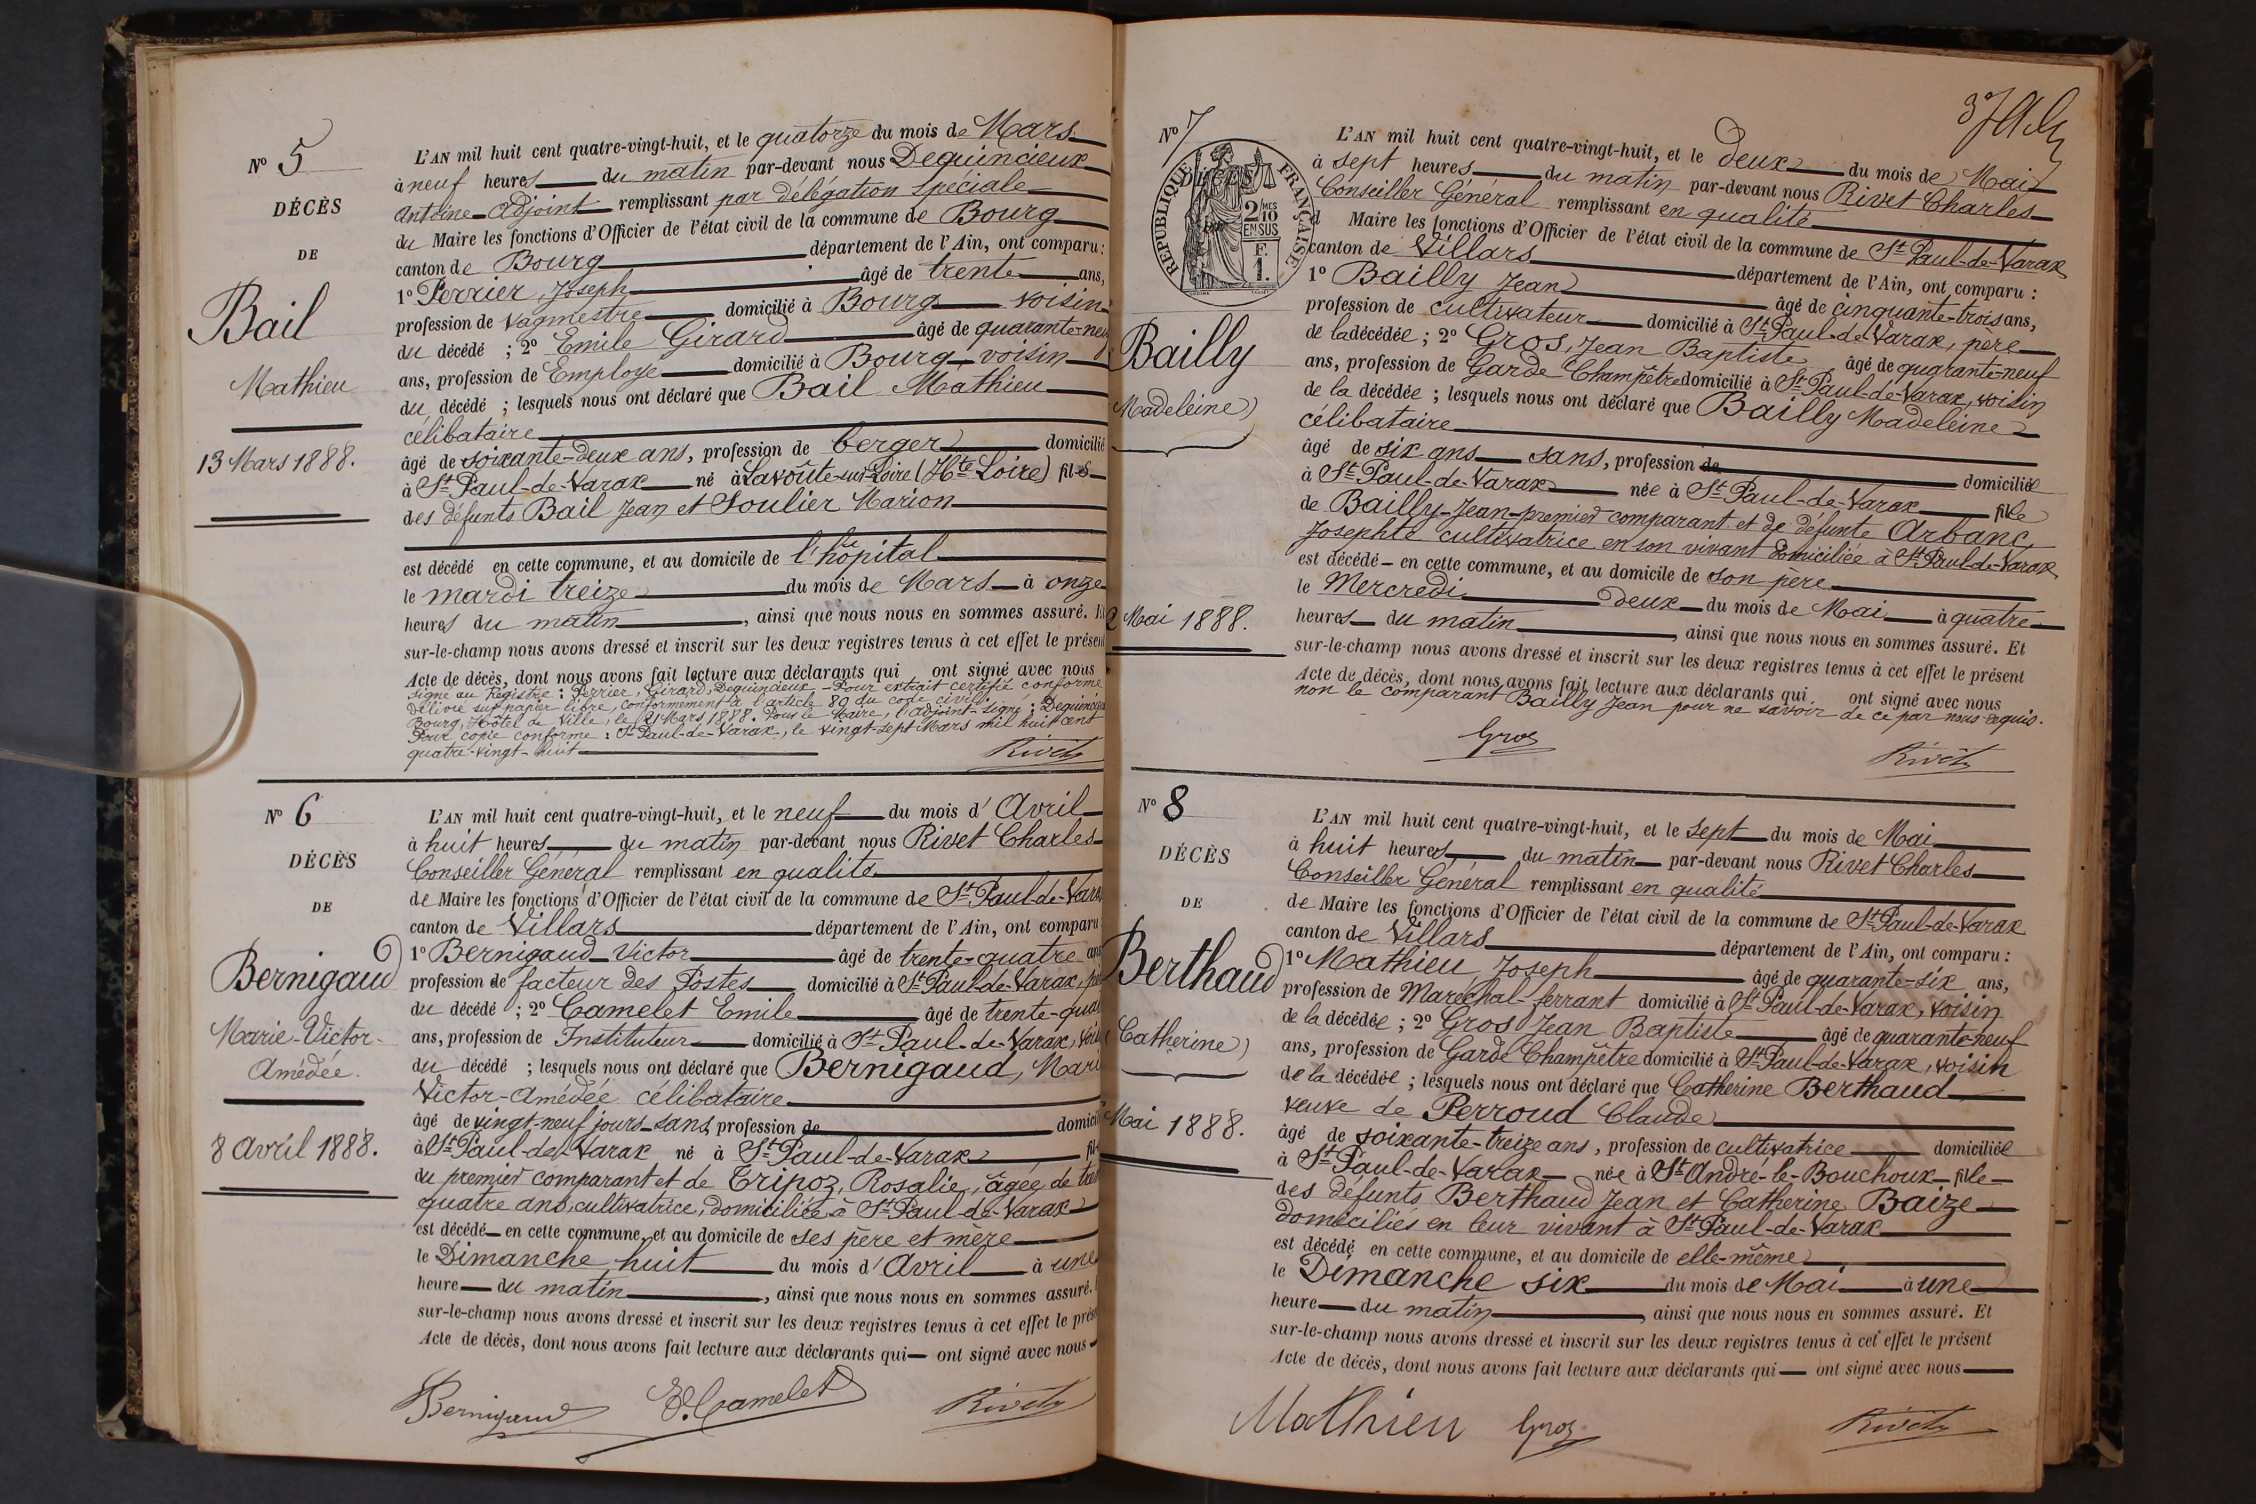 N° 5
DÉCÈS
DE
Bail
Mathieu
13 Mars 1888.
L'AN mil huit cent quatre-vingt-huit, et le quatorze du mois de Mars
à neuf heures du matin par-devant nous Dequincieux
Antoine Adjoint remplissant par délégation spéciale
du Maire les fonctions d'Officier de l'état civil de la commune de Bourg
canton de Bourg département de l'Ain, ont comparu :
1° Perrier, Joseph âgé de trente ans,
profession de vagmestre domicilié à Bourg voisin
du décédé ; 2° Emile Girard âgé de quarante-neuf
ans, profession de Employé domicilié à Bourg voisin
du décédé ; lesquels nous ont déclaré que Bail Mathieu
célibataire
âgé de soixante-deux ans, profession de berger domicilié
à St Paul-de-Varax né à Lavoûte-sur-Loire (Hte Loire) fils
des défunts Bail Jean et Soulier Marion
est décédé en cette commune, et au domicile de l'hôpital
le mardi treize du mois de Mars à onze
heures du matin, ainsi que nous nous en sommes assuré.
sur-le-champ nous avons dressé et inscrit sur les deux registres tenus à cet effet le présent
Acte de décès, dont nous avons fait lecture aux déclarants qui ont signé avec nous
signé au Registre : Perrier, Girard, Dequincieux - Pour extrait certifié conforme
délivré sur papier libre, conformément à l'article 80 du code civil
Bourg, Hôtel de Ville, le 21 Mars 1888. Pour le Maire, l'adjoint signé : Dequincieux
Pour copie conforme : St Paul-de-Varax, le vingt-sept Mars mil huit cent
quatre-vingt-huit
Rivet
N° 6
DÉCÈS
DE
Bernigaud
Marie-Victor-
Amédée.
8 Avril 1888.
L'AN mil huit cent quatre-vingt-huit, et le neuf du mois d'Avril
à huit heures du matin par-devant nous Rivet Charles
Conseiller Général remplissant en qualité
de Maire les fonctions d'Officier de l'état civil de la commune de St Paul-de-Varax
canton de Villars département de l'Ain, ont comparu
1° Bernigaud Victor âgé de trente-quatre ans
profession de facteur des Postes domicilié à St Paul-de-Varax, père
du décédé ; 2° Camelet Emile âgé de trente-quatre
ans, profession de Instituteur domicilié à St Paul-de-Varax, voisin
du décédé ; lesquels nous ont déclaré que Bernigaud, Marie
Victor-Amédée célibataire
âgé de vingt-neuf jours sans profession de domicilié
à St Paul-de-Varax né à St Paul-de-Varax fils
du premier comparant et de Tripoz, Rosalie, âgée de trente
quatre ans, cultivatrice, domiciliée à St Paul-de-Varax
est décédé en cette commune, et au domicile de ses père et mère
le Dimanche huit du mois d'Avril à une
heure du matin, ainsi que nous nous en sommes assuré.
sur-le-champ nous avons dressé et inscrit sur les deux registres tenus à cet effet le présent
Acte de décès, dont nous avons fait lecture aux déclarants qui ont signé avec nous
Bernigaud E. Camelet Rivet
N° 7
DÉCÈS
RÉPUBLIQUE FRANÇAISE
2/10 MES
EN SUS
F.
1.
Bailly
Madeleine
2 Mai 1888.
L'AN mil huit cent quatre-vingt-huit, et le deux du mois de Mai
à sept heures du matin par-devant nous Rivet Charles
Conseiller Général remplissant en qualité
d Maire les fonctions d'Officier de l'état civil de la commune de St Paul-de-Varax
canton de Villars département de l'Ain, ont comparu :
1° Bailly Jean âgé de cinquante-trois ans,
profession de cultivateur domicilié à St Paul-de-Varax, père
de la décédée ; 2° Gros, Jean Baptiste âgé de quarante-neuf
ans, profession de Garde Champêtre domicilié à St Paul-de-Varax, voisin
de la décédée ; lesquels nous ont déclaré que Bailly Madeleine
célibataire
âgé de six ans sans, profession de domiciliée
à St Paul-de-Varax née à St Paul-de-Varax fille
de Bailly Jean premier comparant et de défunte Arbanc
Josephte cultivatrice en son vivant domiciliée à St Paul-de-Varax
est décédé en cette commune, et au domicile de son père
le Mercredi deux du mois de Mai à quatre
heures du matin, ainsi que nous nous en sommes assuré. Et
sur-le-champ nous avons dressé et inscrit sur les deux registres tenus à cet effet le présent
Acte de décès, dont nous avons fait lecture aux déclarants qui ont signé avec nous
non le comparant Bailly Jean pour ne savoir de ce par nous requis.
Gros Rivet
N° 8
DÉCÈS
DE
Berthaud
Catherine
Mai 1888.
L'AN mil huit cent quatre-vingt-huit, et le sept du mois de Mai
à huit heures du matin par-devant nous Rivet Charles
Conseiller Général remplissant en qualité
de Maire les fonctions d'Officier de l'état civil de la commune de St Paul-de-Varax
canton de Villars département de l'Ain, ont comparu :
1° Mathieu Joseph âgé de quarante-six ans,
profession de Maréchal-ferrant domicilié à St Paul-de-Varax, voisin
de la décédée ; 2° Gros Jean Baptiste âgé de quarante-neuf
ans, profession de Garde Champêtre domicilié à St Paul-de-Varax, voisin
de la décédée ; lesquels nous ont déclaré que Catherine Berthaud
veuve de Perroud Claude
âgé de soixante-treize ans, profession de cultivatrice domiciliée
à St Paul-de-Varax née à St André-le-Bouchoux fille
des défunts Berthaud Jean et Catherine Baize
domiciliés en leur vivant à St Paul-de-Varax
est décédé en cette commune, et au domicile de elle-même
le Dimanche six du mois de Mai à une
heure du matin, ainsi que nous nous en sommes assuré. Et
sur-le-champ nous avons dressé et inscrit sur les deux registres tenus à cet effet le présent
Acte de décès, dont nous avons fait lecture aux déclarants qui ont signé avec nous
Mathieu Gros Rivet